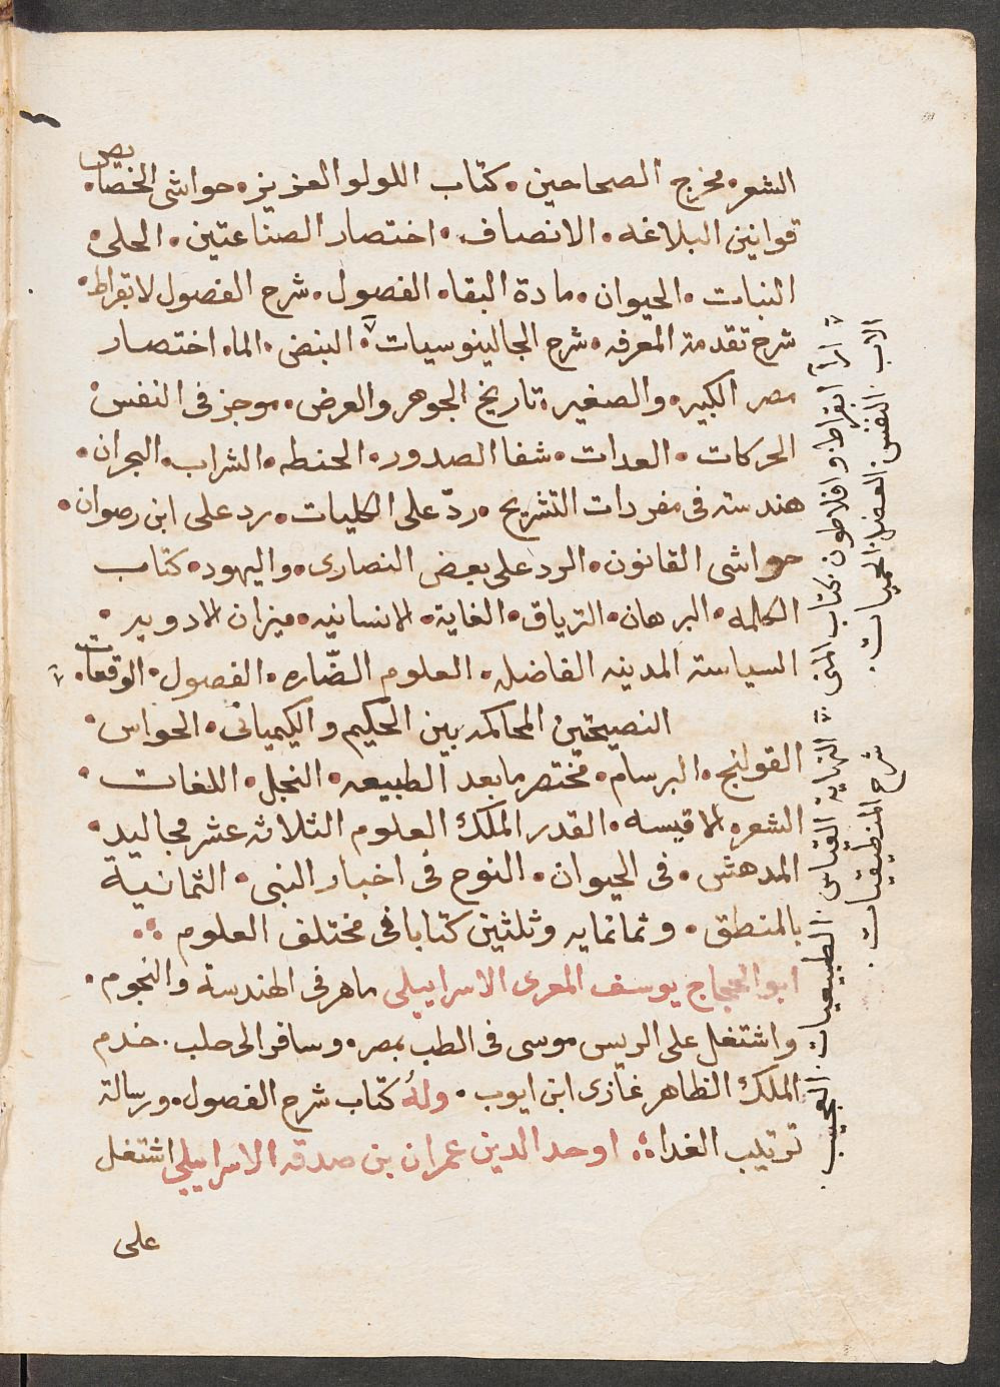 الشعر. مخرج الصحاحين. كتاب اللولو العزيز. حواشى الخصايص
قوانين البلاغه. الانصاف. اختصار الصناعتين. الحلى.
النبات. الحيوان. مادة البقا. الفصول. شرح الفصول لابقراط.
شرح تقدمة المعرفه. شرح الجالينوسيات. النبض. الما. اختصار
مصر الكبير. والصغير. تاريخ الجوهر والعرض. موجز فى النفس.
الحركات. العدات. شفا الصدور. الحنطه. الشراب. البحران.
هندسته فى مفردات التشريح. ردّ على الكليات. رد على ابن رصوان.
حواشى القانون. الرد على بعض النصارى. واليهود. كتاب
الكلمه. البرهان. الترياق. الغاية. الانسانيه. ميزان الادويه.
السياسة المدينه الفاضله. العلوم الضّاره. الفصول. الوقعات.
النصيحتين المحاكمه بين الحكيم والكيميانى. الحواس.
القولنج. البرسام. مختصر ما بعد الطبيعه. النجل. اللغات.
الشعر. الاقيسه. القدر. الملك العلوم الثلاثه عشر مجاليد.
المدهش. فى الحيوان. النوح فى اخبار النبى. الثمانية
بالمنطق. وثمانمايه وثلثين كتابا فى مختلف العلوم
ابو الحجاج يوسف المعرى الاسراييلى ماهر فى الهندسة والنجوم.
واشتغل على الريس موسى فى الطب بمصر. وسافر الى حلب. خدم
الملك الظاهر غازى ابن ايوب. وله كتاب شرح الفصول. ورسالة
ترتيب الغدا. اوحد الدين عمران بن صدقه الاسراييلى اشتغل
على
ارآ ابقراط وافلاطون. كتاب المنى
الاب. النفس. العضل. الحميات.
النهاية القياس. الطبيعيات. العجيب.
شرح المنطيقيات.